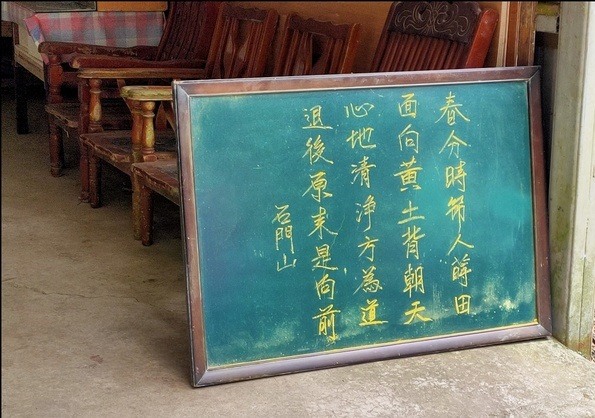 春分時節人蒔田
面向黃土背朝天
心地清淨方為道
退後原來是向前
石門山